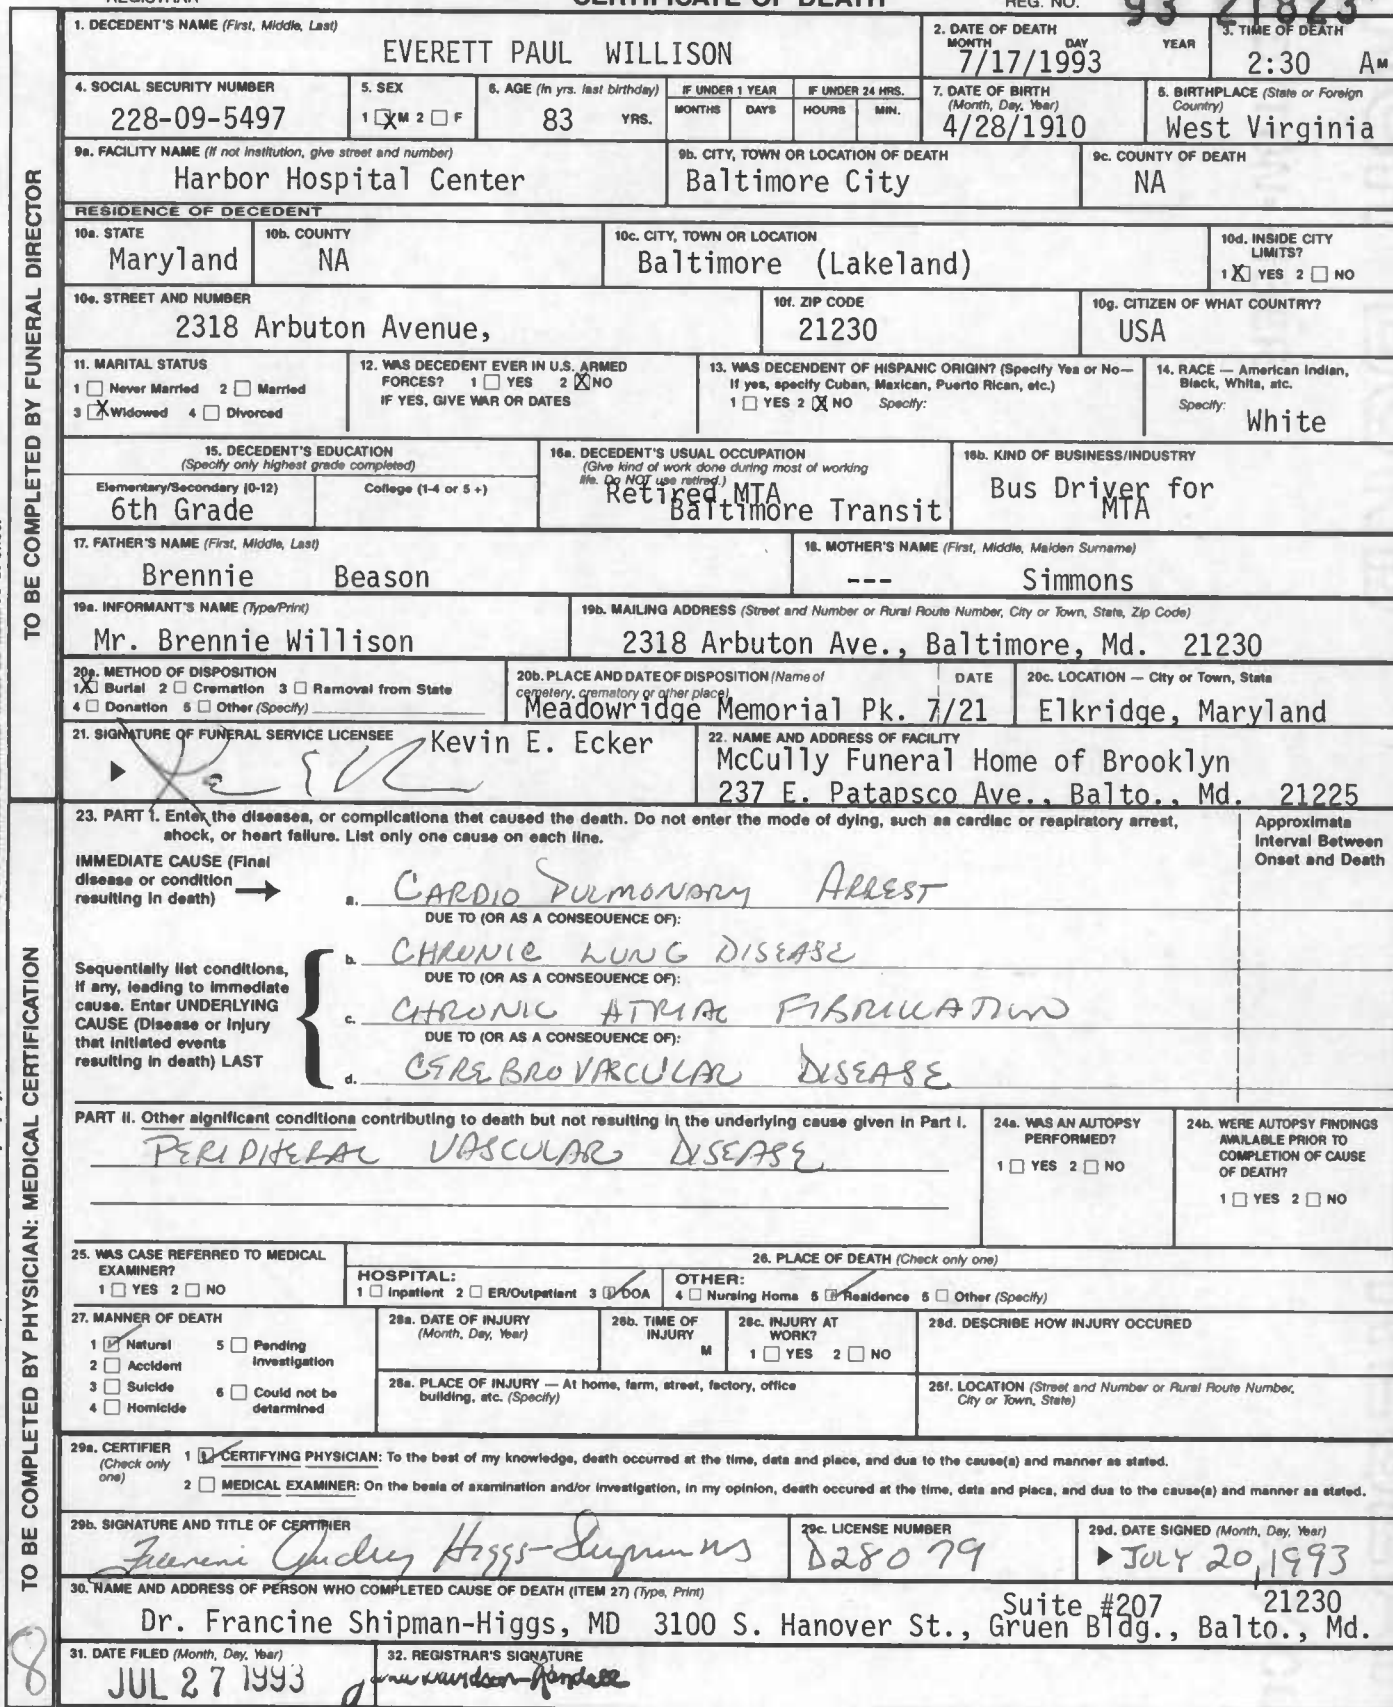 REGISTRAR CERTIFICATE OF DEATH REG. NO. 93 21823
1. DECEDENT'S NAME (First, Middle, Last)
EVERETT PAUL WILLISON
2. DATE OF DEATH
MONTH DAY YEAR
7/17/1993
3. TIME OF DEATH
2:30 AM
4. SOCIAL SECURITY NUMBER
228-09-5497
5. SEX
1 X M 2 ☐ F
6. AGE (In yrs. last birthday)
83 YRS.
IF UNDER 1 YEAR
MONTHS DAYS
IF UNDER 24 HRS.
HOURS MIN.
7. DATE OF BIRTH
(Month, Day, Year)
4/28/1910
8. BIRTHPLACE (State or Foreign
Country)
West Virginia
9a. FACILITY NAME (If not institution, give street and number)
Harbor Hospital Center
9b. CITY, TOWN OR LOCATION OF DEATH
Baltimore City
9c. COUNTY OF DEATH
NA
RESIDENCE OF DECEDENT
10a. STATE
Maryland
10b. COUNTY
NA
10c. CITY, TOWN OR LOCATION
Baltimore (Lakeland)
10d. INSIDE CITY
LIMITS?
1 X YES 2 ☐ NO
10e. STREET AND NUMBER
2318 Arbuton Avenue,
10f. ZIP CODE
21230
10g. CITIZEN OF WHAT COUNTRY?
USA
11. MARITAL STATUS
1 ☐ Never Married 2 ☐ Married
3 X Widowed 4 ☐ Divorced
12. WAS DECEDENT EVER IN U.S. ARMED
FORCES? 1 ☐ YES 2 X NO
IF YES, GIVE WAR OR DATES
13. WAS DECENDENT OF HISPANIC ORIGIN? (Specify Yes or No—
If yes, specify Cuban, Mexican, Puerto Rican, etc.)
1 ☐ YES 2 X NO Specify:
14. RACE — American Indian,
Black, White, etc.
Specify:
White
15. DECEDENT'S EDUCATION
(Specify only highest grade completed)
Elementary/Secondary (0-12) College (1-4 or 5 +)
6th Grade
16a. DECEDENT'S USUAL OCCUPATION
(Give kind of work done during most of working
life. Do NOT use retired.)
Retired MTA
Baltimore Transit
16b. KIND OF BUSINESS/INDUSTRY
Bus Driver for
MTA
17. FATHER'S NAME (First, Middle, Last)
Brennie Beason
18. MOTHER'S NAME (First, Middle, Maiden Surname)
--- Simmons
19a. INFORMANT'S NAME (Type/Print)
Mr. Brennie Willison
19b. MAILING ADDRESS (Street and Number or Rural Route Number, City or Town, State, Zip Code)
2318 Arbuton Ave., Baltimore, Md. 21230
20a. METHOD OF DISPOSITION
1 X Burial 2 ☐ Cremation 3 ☐ Removal from State
4 ☐ Donation 5 ☐ Other (Specify)
20b. PLACE AND DATE OF DISPOSITION (Name of
cemetery, crematory or other place) DATE
Meadowridge Memorial Pk. 7/21
20c. LOCATION — City or Town, State
Elkridge, Maryland
21. SIGNATURE OF FUNERAL SERVICE LICENSEE
Kevin E. Ecker
22. NAME AND ADDRESS OF FACILITY
McCully Funeral Home of Brooklyn
237 E. Patapsco Ave., Balto., Md. 21225
TO BE COMPLETED BY FUNERAL DIRECTOR
23. PART I. Enter the diseases, or complications that caused the death. Do not enter the mode of dying, such as cardiac or respiratory arrest,
shock, or heart failure. List only one cause on each line.
Approximate
Interval Between
Onset and Death
IMMEDIATE CAUSE (Final
disease or condition
resulting in death)
a. CARDIO PULMONARY ARREST
DUE TO (OR AS A CONSEQUENCE OF):
Sequentially list conditions,
if any, leading to immediate
cause. Enter UNDERLYING
CAUSE (Disease or injury
that initiated events
resulting in death) LAST
b. CHRONIC LUNG DISEASE
DUE TO (OR AS A CONSEQUENCE OF):
c. CHRONIC ATRIAL FIBRILLATION
DUE TO (OR AS A CONSEQUENCE OF):
d. CEREBROVASCULAR DISEASE
PART II. Other significant conditions contributing to death but not resulting in the underlying cause given in Part I.
PERIPHERAL VASCULAR DISEASE
24a. WAS AN AUTOPSY
PERFORMED?
1 ☐ YES 2 ☐ NO
24b. WERE AUTOPSY FINDINGS
AVAILABLE PRIOR TO
COMPLETION OF CAUSE
OF DEATH?
1 ☐ YES 2 ☐ NO
25. WAS CASE REFERRED TO MEDICAL
EXAMINER?
1 ☐ YES 2 ☐ NO
26. PLACE OF DEATH (Check only one)
HOSPITAL:
1 ☐ Inpatient 2 ☐ ER/Outpatient 3 ☑ DOA
OTHER:
4 ☐ Nursing Home 5 ☑ Residence 6 ☐ Other (Specify)
27. MANNER OF DEATH
1 ☑ Natural 5 ☐ Pending
Investigation
2 ☐ Accident
3 ☐ Suicide 6 ☐ Could not be
determined
4 ☐ Homicide
28a. DATE OF INJURY
(Month, Day, Year)
28b. TIME OF
INJURY
M
28c. INJURY AT
WORK?
1 ☐ YES 2 ☐ NO
28d. DESCRIBE HOW INJURY OCCURED
28e. PLACE OF INJURY — At home, farm, street, factory, office
building, etc. (Specify)
28f. LOCATION (Street and Number or Rural Route Number,
City or Town, State)
29a. CERTIFIER
(Check only
one)
1 ☑ CERTIFYING PHYSICIAN: To the best of my knowledge, death occurred at the time, date and place, and due to the cause(s) and manner as stated.
2 ☐ MEDICAL EXAMINER: On the basis of examination and/or investigation, in my opinion, death occured at the time, date and place, and due to the cause(s) and manner as stated.
29b. SIGNATURE AND TITLE OF CERTIFIER
29c. LICENSE NUMBER
D28079
29d. DATE SIGNED (Month, Day, Year)
JULY 20, 1993
30. NAME AND ADDRESS OF PERSON WHO COMPLETED CAUSE OF DEATH (ITEM 27) (Type, Print)
Suite #207 21230
Dr. Francine Shipman-Higgs, MD 3100 S. Hanover St., Gruen Bldg., Balto., Md.
31. DATE FILED (Month, Day, Year)
JUL 27 1993
32. REGISTRAR'S SIGNATURE
TO BE COMPLETED BY PHYSICIAN: MEDICAL CERTIFICATION
8